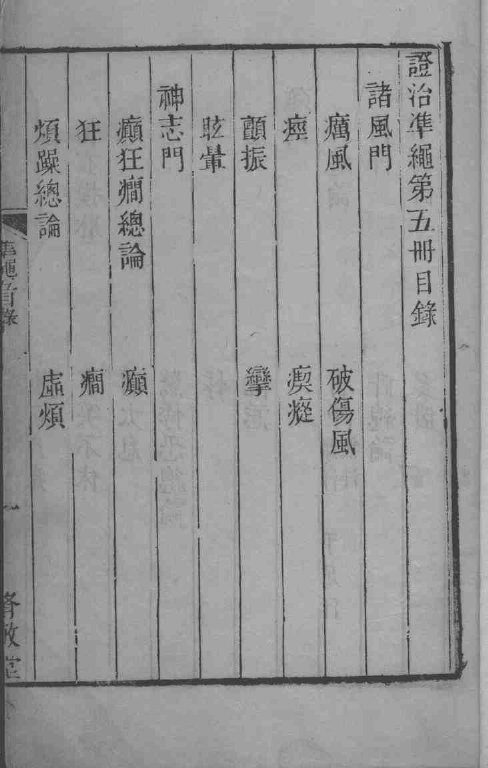 證治準繩第五冊目錄
諸風門
癘風 破傷風
痙 瘈瘲
顫振 攣
眩暈
神志門
癲狂癇總論 癲
狂 癇
煩躁總論 虛煩
準繩目錄
一